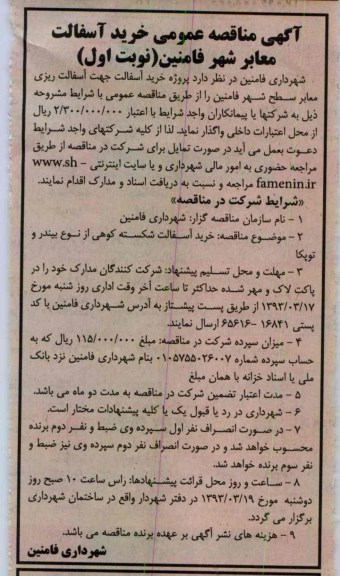 آگهی مناقصه عمومی خرید آسفالت
معابر شهر فامنین(نوبت اول)
شهرداری فامنین در نظر دارد پروژه خرید آسفالت جهت آسفالت ریزی
معابر سطح شهر فامنین را از طریق مناقصه عمومی با شرایط مشروحه
ذیل به شرکتها یا پیمانکاران واجد شرایط با اعتبار ۲/۳۰۰/۰۰۰/۰۰۰ ریال
از محل اعتبارات داخلی واگذار نماید. لذا از کلیه شرکتهای واجد شرایط
دعوت بعمل می آید در صورت تمایل برای شرکت در مناقصه از طریق
مراجعه حضوری به امور مالی شهرداری و یا سایت اینترنتی www.sh-
famenin.ir مراجعه و نسبت به دریافت اسناد و مدارک اقدام نمایند.
«شرایط شرکت در مناقصه»
۱ - نام سازمان مناقصه گزار: شهرداری فامنین
۲ - موضوع مناقصه: خرید آسفالت شکسته کوهی از نوع بیندر و
توپکا
۳ - مهلت و محل تسلیم پیشنهاد: شرکت کنندگان مدارک خود را در
پاکت لاک و مهر شده حداکثر تا ساعت آخر وقت اداری روز شنبه مورخ
۱۳۹۳/۰۳/۱۷ از طریق پست پیشتاز به آدرس شهرداری فامنین با کد
پستی ۱۶۸۴۱ -۶۵۶۱۶ ارسال نمایند.
۴ - میزان سپرده شرکت در مناقصه: مبلغ ۱۱۵/۰۰۰/۰۰۰ ریال که به
حساب سپرده شماره ۰۱۰۵۷۵۵۰۲۶۰۰۷ بنام شهرداری فامنین نزد بانک
ملی یا اسناد خزانه با همان مبلغ
۵ - مدت اعتبار تضمین شرکت در مناقصه به مدت دو ماه می باشد.
۶ - شهرداری در رد یا قبول یک یا کلیه پیشنهادات مختار است.
۷ - در صورت انصراف نفر اول سپرده وی ضبط و نفر دوم برنده
محسوب خواهد شد و در صورت انصراف نفر دوم سپرده وی نیز ضبط و
نفر سوم برنده خواهد شد.
۸ - ساعت و روز محل قرائت پیشنهادها: راس ساعت ۱۰ صبح روز
دوشنبه مورخ ۱۳۹۳/۰۳/۱۹ در دفتر شهردار واقع در ساختمان شهرداری
برگزار می گردد.
۹ - هزینه های نشر آگهی بر عهده برنده مناقصه می باشد.
شهرداری فامنین